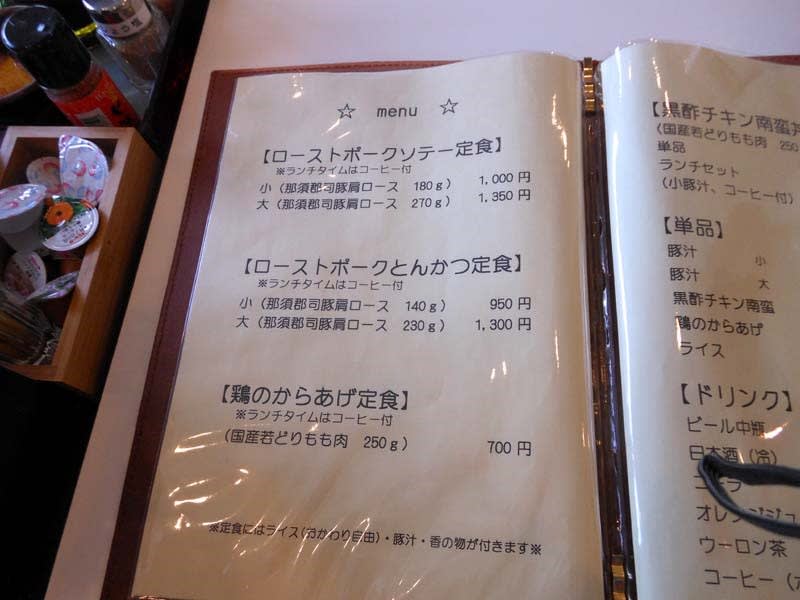 ☆ menu ☆
【ローストポークソテー定食】
※ランチタイムはコーヒー付
小（那須郡司豚肩ロース 180g） 1,000 円
大（那須郡司豚肩ロース 270g） 1,350 円
【ローストポークとんかつ定食】
※ランチタイムはコーヒー付
小（那須郡司豚肩ロース 140g） 950 円
大（那須郡司豚肩ロース 230g） 1,300 円
【鶏のからあげ定食】
※ランチタイムはコーヒー付
（国産若どりもも肉 250g） 700 円
※定食にはライス（おかわり自由）・豚汁・香の物が付きます※
【黒酢チキン南蛮丼
（国産若どりもも肉 250
単品
ランチセット
（小豚汁、コーヒー付）
【単品】
豚汁 小
豚汁 大
黒酢チキン南蛮
鶏のからあげ
ライス
【ドリンク】
ビール中瓶
日本酒（冷）
コーラ
オレンジジュ
ウーロン茶
コーヒー（